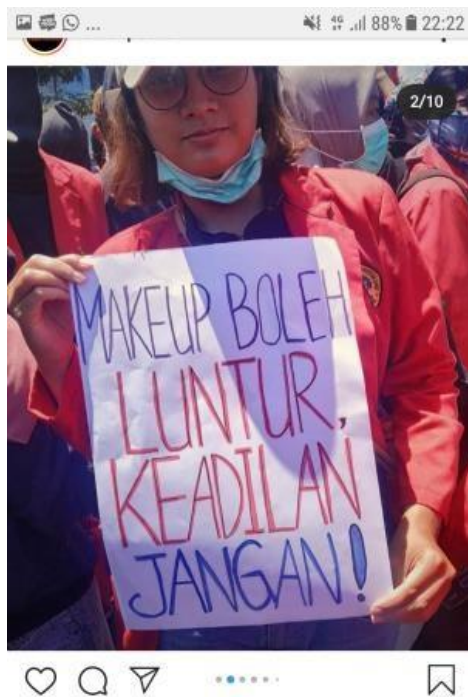 4G 88% 22:22
2/10
MAKEUP BOLEH
LUNTUR,
KEADILAN
JANGAN!